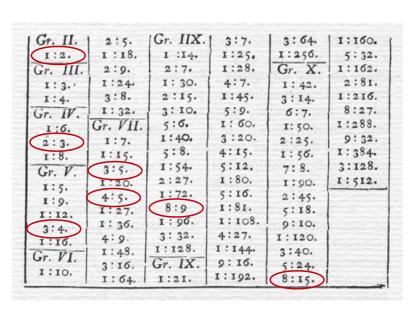 Gr. II.
1 : 2.
Gr. III.
1 : 3.
1 : 4.
Gr. IV.
1 : 6.
2 : 3.
1 : 8.
Gr. V.
1 : 5.
1 : 9.
1 : 12.
3 : 4.
1 : 16.
Gr. VI.
1 : 10.
2 : 5.
1 : 18.
2 : 9.
1 : 24.
3 : 8.
1 : 32.
Gr. VII.
1 : 7.
1 : 15.
3 : 5.
1 : 20.
4 : 5.
1 : 27.
1 : 36.
4 : 9.
1 : 48.
3 : 16.
1 : 64.
Gr. IIX.
1 : 14.
2 : 7.
1 : 30.
2 : 15.
3 : 10.
5 : 6.
1 : 40.
5 : 8.
1 : 54.
2 : 27.
1 : 72.
8 : 9
1 : 96.
3 : 32.
1 : 128.
Gr. IX.
1 : 21.
3 : 7.
1 : 25.
1 : 28.
4 : 7.
1 : 45.
5 : 9.
1 : 60.
3 : 20.
4 : 15.
5 : 12.
1 : 80.
5 : 16.
1 : 81.
1 : 108.
4 : 27.
1 : 144.
9 : 16.
1 : 192.
3 : 64.
1 : 256.
Gr. X.
1 : 42.
3 : 14.
6 : 7.
1 : 50.
2 : 25.
1 : 56.
7 : 8.
1 : 90.
2 : 45.
5 : 18.
9 : 10.
1 : 120.
3 : 40.
5 : 24.
8 : 15.
1 : 160.
5 : 32.
1 : 162.
2 : 81.
1 : 216.
8 : 27.
1 : 288.
9 : 32.
1 : 384.
3 : 128.
1 : 512.